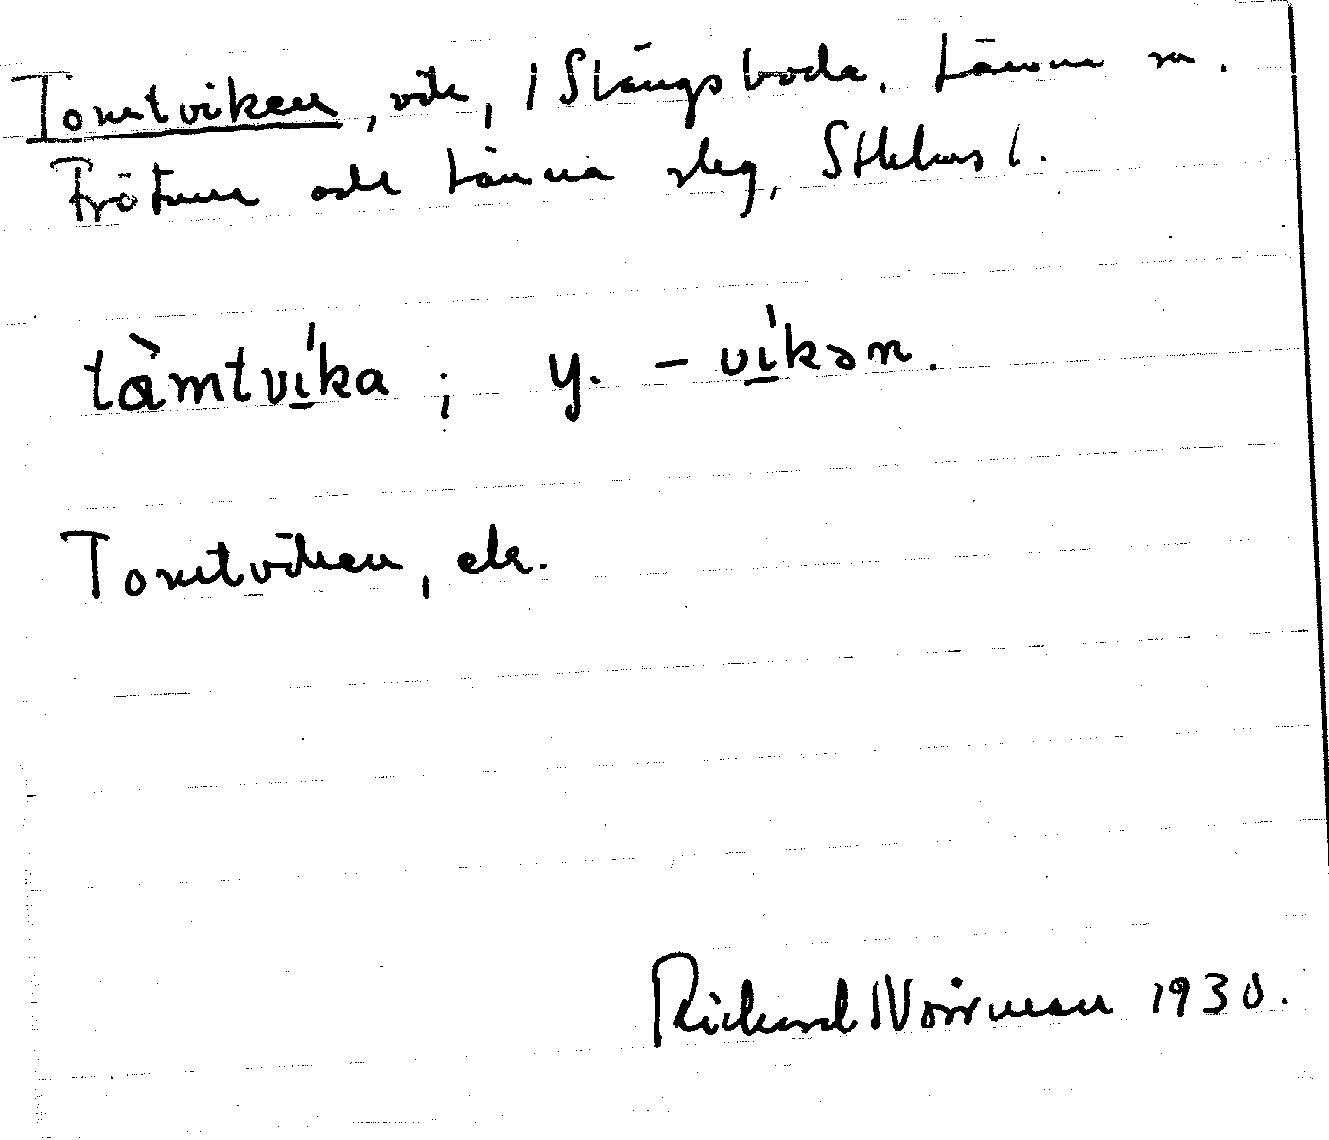 Tomtviken, vik, i Slängsboda, Länna sn.
Frötuna och Länna slg, Sthlms l.
tàmtvíka; y. -víkən.
Tomtviken, ek.
Rickard Norrman 1930.